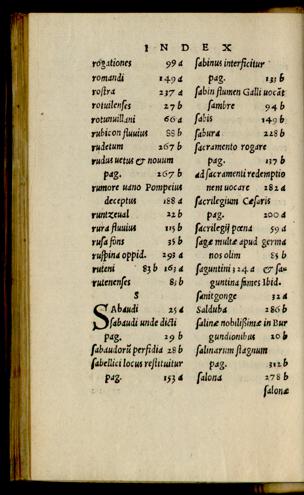 INDEX
rogationes 99 a
romandi 149 a
rostra 237 a
rotuilenses 27 b
rotunuillani 66 a
rubicon fluuius 88 b
rudetum 267 b
rudus uetus & nouum
pag. 267 b
rumore uano Pompeius
deceptus 188 a
runtzeual 22 b
rura fluuius 115 b
rusa fons 35 b
ruspina oppid. 293 a
ruteni 83 b 163 a
rutenenses 83 b
S
SAbaudi 25 a
sabaudi unde dicti
pag. 29 b
sabaudorū perfidia 28 b
sabellici locus restituitur
pag. 153 a
sabinus interficitur
pag. 135 b
sabin flumen Galli uocāt
sambre 94 b
sabis 149 b
sabura 228 b
sacramento rogare
pag. 137 b
ad sacramenti redemptio
nem uocare 282 a
sacrilegium Cæsaris
pag. 200 a
sacrilegij pœna 59 a
sagæ multæ apud germa
nos olim 85 b
saguntini 324 a & sa-
guntina fames ibid.
sanitgonge 32 a
Salduba 286 b
salinæ nobilissimæ in Bur
gundionibus 20 b
salinarum stagnum
pag. 312 b
salona 278 b
salonæ